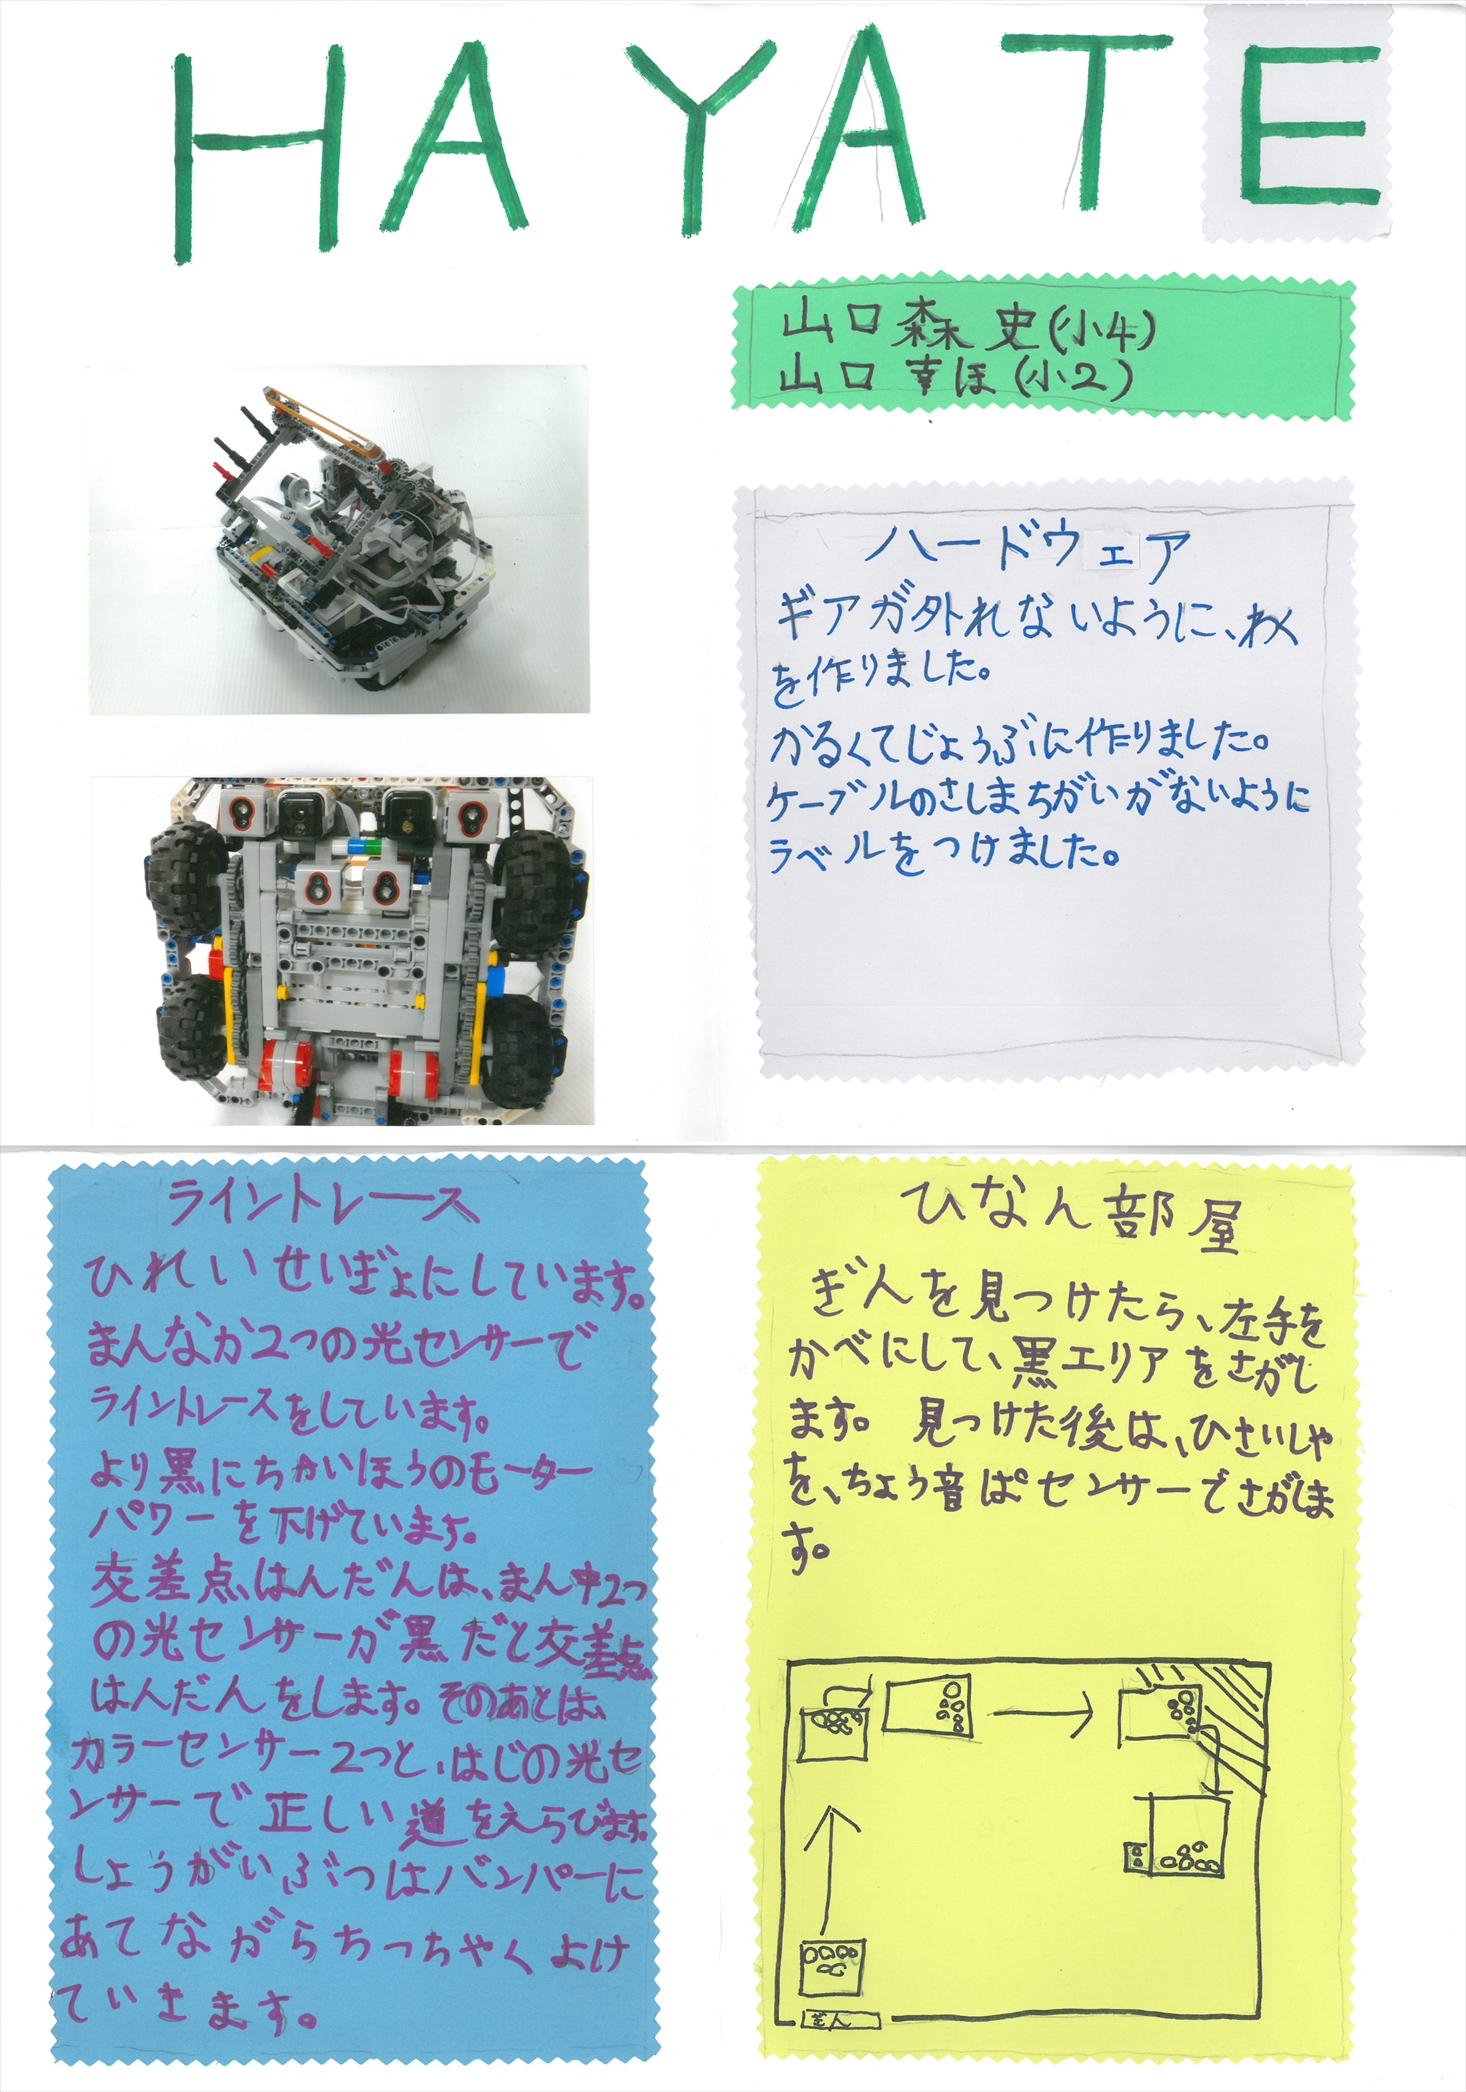 HAYATE
山口森史(小4)
山口幸ほ(小2)
ハードウェア
ギアガ外れないように、わく
を作りました。
かるくてじょうぶに作りました。
ケーブルのさしまちがいがないように
ラベルをつけました。
ライントレース
ひれいせいぎょにしています。
まんなか2つの光センサーで
ライントレースをしています。
より黒にちかいほうのモーター
パワーを下げています。
交差点はんだんは、まん中2つ
の光センサーが黒だと交差点
はんだんをします。そのあとは、
カラーセンサー2つと、はじの光セ
ンサーで正しい道をえらびます。
しょうがいぶつはバンパーに
あてながらちっちゃくよけ
ていきます。
ひなん部屋
ぎんを見つけたら、左手を
かべにして、黒エリアをさがし
ます。見つけた後は、ひさいしゃ
を、ちょう音ぱセンサーでさがしま
す。
ぎん